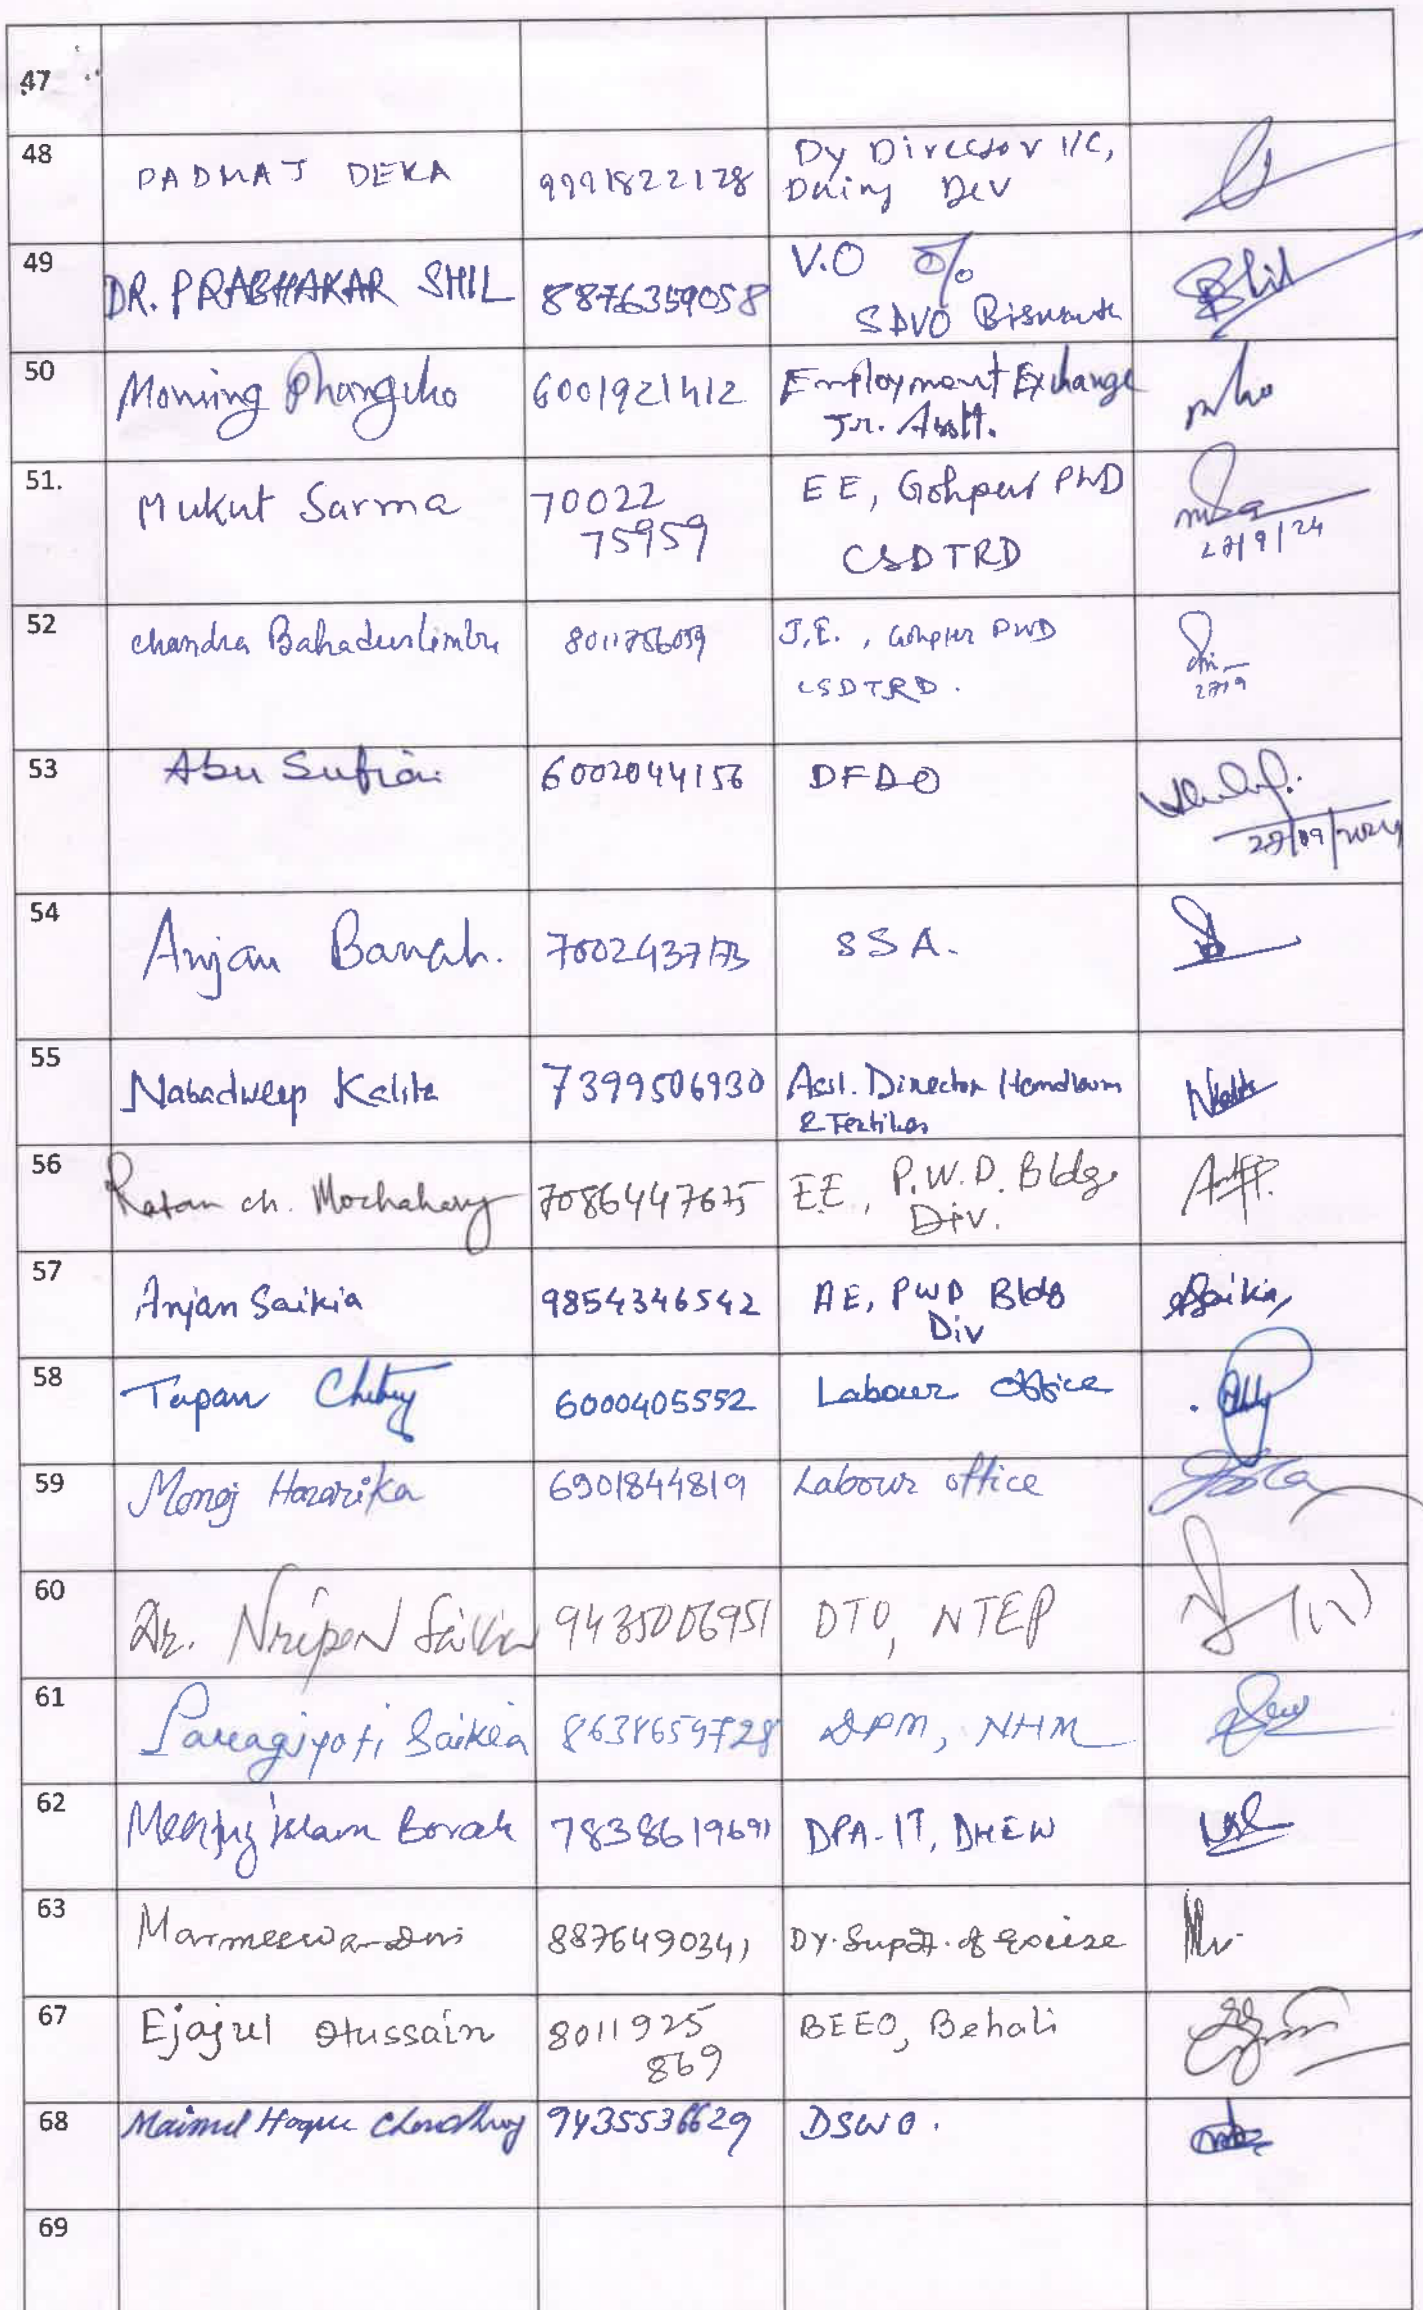 47
48 PADMA J DEKA 9991822128 Dy Director I/C,
Dairy Dev
49 DR. PRABHAKAR SHIL 8876359058 V.O O/o
SDVO Biswanath
50 Morning Phangcho 6001921412 Employment Exchange
Jr. Asstt.
51. Mukut Sarma 70022
75959 EE, Gohpur PWD
CSDTRD
27/9/24
52 Chandra Bahadur Limbu J.E., Gohpur PWD
CSDTRD.
27/9
53 Abu Sufian 6002044156 DFDO
27/09/2024
54 Anjan Baruah. 7002437173 SSA.
55 Nabadweep Kalita 7399506930 Asst. Director Handloom
& Textiles
56 Ratan ch. Mochahary 7086447675 EE, P.W.D. Bldg.
Div.
57 Anjan Saikia 9854346542 AE, PWD Bldg
Div
58 Tapan Chetry 6000405552 Labour Office
59 Monoj Hazarika 6901844819 Labour office
60 Dr. Nripen Saikia 9435006951 DTO, NTEP
61 Paragjyoti Saikia 8638659728 DPM, NHM
62 Islam Borah 7838619691 DPA-IT, DHEW
63 8876490341 Dy. Supdt. of Excise
67 Ejajul Hussain 8011925
869 BEEO, Behali
68 Mainul Hoque Choudhury 9435536629 DSWO.
69